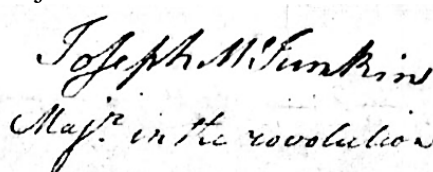 Joseph McJunkins
Majr. in the rovolution